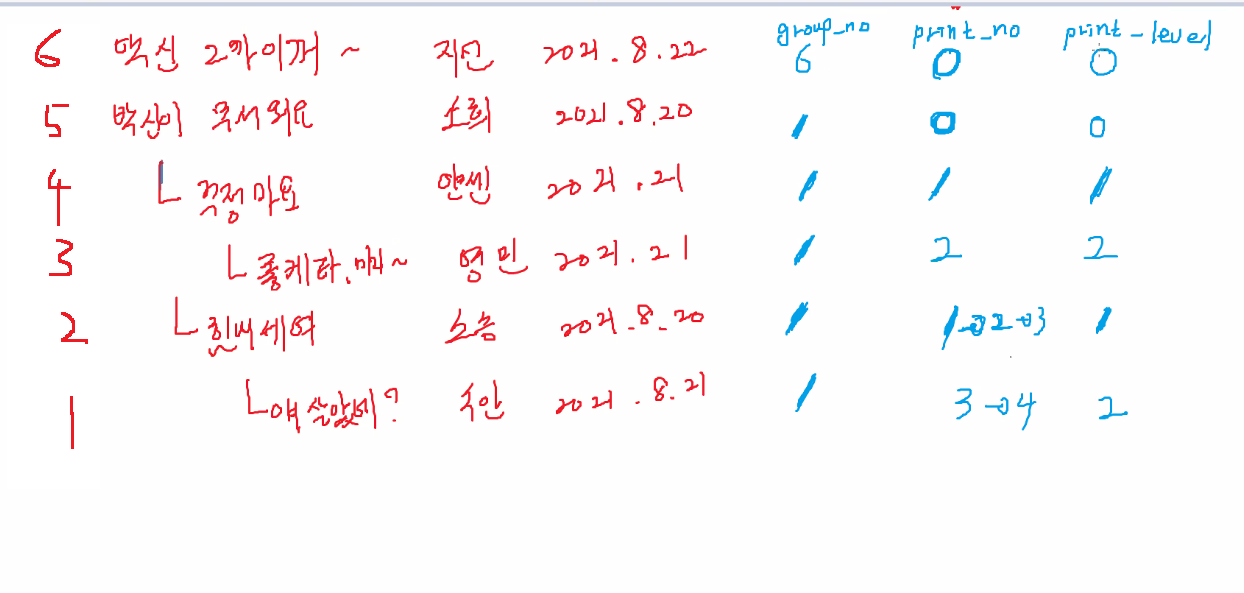 group_no print_no print-level
6 백신 2까이꺼~ 지민 2021.8.22 6 0 0
5 백신이 무서워요 소희 2021.8.20 1 0 0
4 ㄴ걱정마요 2021.21 1 1 1
3 ㄴ좋케타.~ 영민 2021.21 1 2 2
2 ㄴ힘내세여 소승 2021.8.20 1 1→2→3 1
1 ㄴ ? 2021.8.21 1 3→4 2